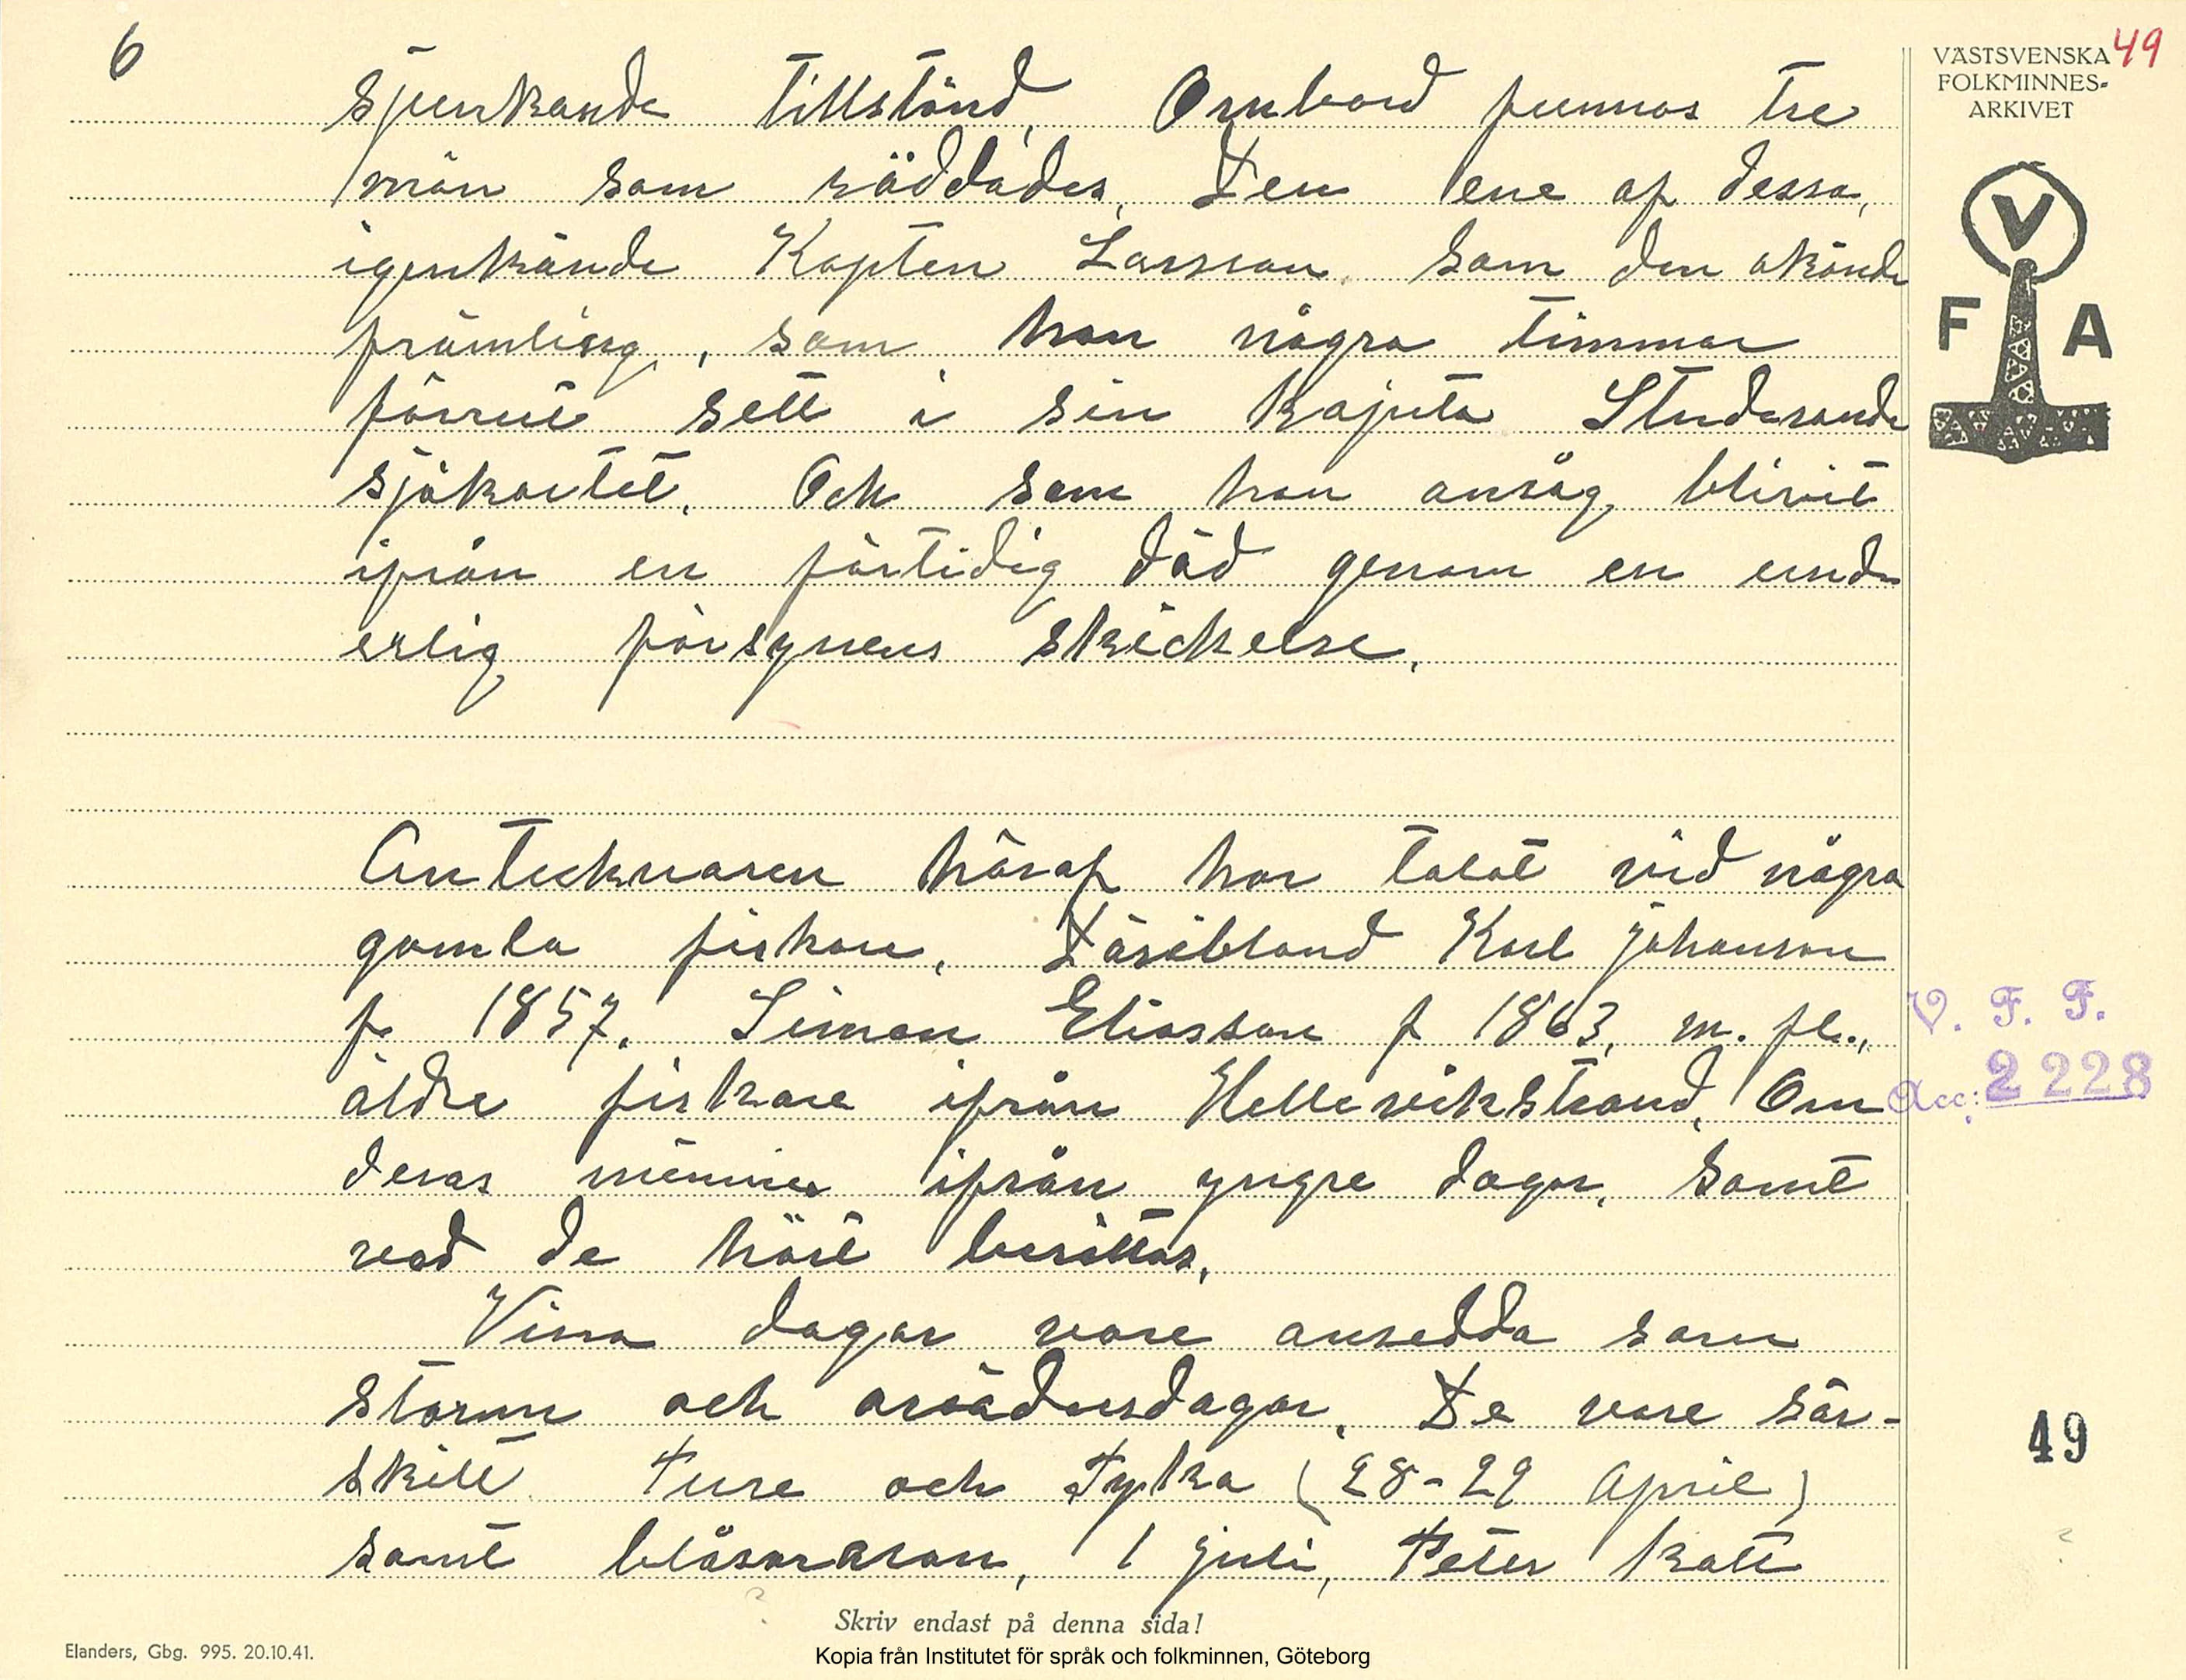 6
49
VÄSTSVENSKA
FOLKMINNES-
ARKIVET
V
F A
sjunkande tillstånd, Ombord funnos tre
män som räddades, Den ene af dessa,
igenkände Kapten Larsson, som den okände
främling, som han några timmar
förrut sett i sin kajuta Studerande
sjökortet, Och som han ansåg blivit
ifrån en förtidig död genom en und
erlig försynens skickelse,
Antecknaren häraf har talat vid några
gamla fiskare, Däribland Karl Johanson
f 1857, Simon Eliasson f 1863, m. fl.,
äldre fiskare ifrån Hellevikstrand, Om
deras minnen ifrån yngre dagar, samt
vad de hört berättas,
Vissa dagar vore ansedda som
storm och orådnsdagar, De vore sär-
skilt Ture och Tyko (28-29 April)
samt blåsaran, 1 juli, Peter katt
V. F. F.
Acc: 2228
49
Skriv endast på denna sida!
Elanders, Gbg. 995. 20.10.41.
Kopia från Institutet för språk och folkminnen, Göteborg